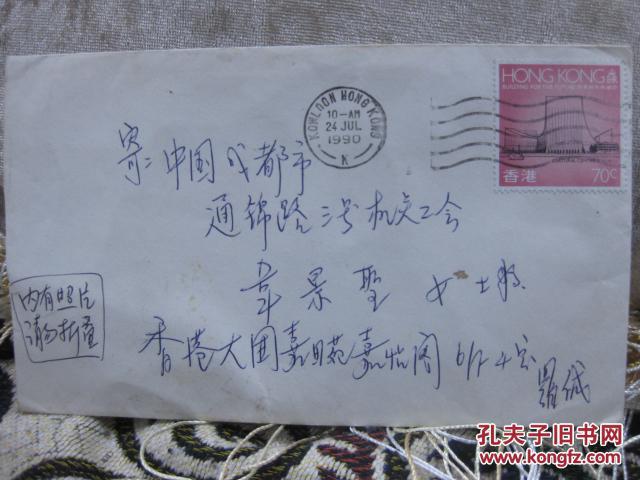 HONG KONG
BUILDING FOR THE FUTURE
香港 70c
KOWLOON HONG KONG
10-AM
24 JUL
1990
K
寄: 中国成都市
通锦路二号机关工会
景聖 女士
内有照片
请勿折叠
香港大围嘉田苑嘉怡阁 6/F 4室
羅
孔夫子旧书网
www.kongfz.com